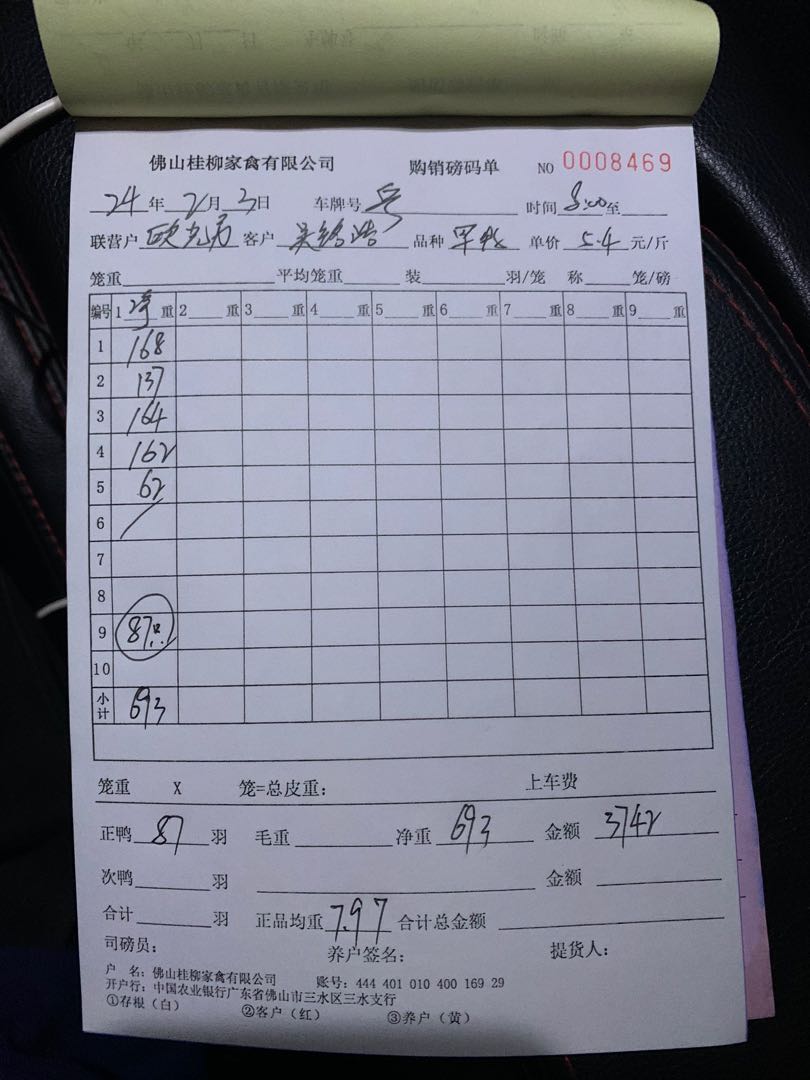 佛山桂柳家禽有限公司 购销磅码单 NO 0008469
24年2月3日 车牌号 时间8:00至
联营户 欧 客户 吴 品种 单价5.4元/斤
笼重 平均笼重 装 羽/笼 称 笼/磅
编号 1 重 2 重 3 重 4 重 5 重 6 重 7 重 8 重 9 重
1 168
2 137
3 164
4 162
5 62
6
7
8
9 87
10
小计 693
笼重 X 笼=总皮重: 上车费
正鸭 87 羽 毛重 净重 693 金额 3742
次鸭 羽 金额
合计 羽 正品均重 7.97 合计总金额
司磅员: 养户签名: 提货人:
户 名: 佛山桂柳家禽有限公司 账号: 444 401 010 400 169 29
开户行: 中国农业银行广东省佛山市三水区三水支行
①存根(白) ②客户(红) ③养户(黄)